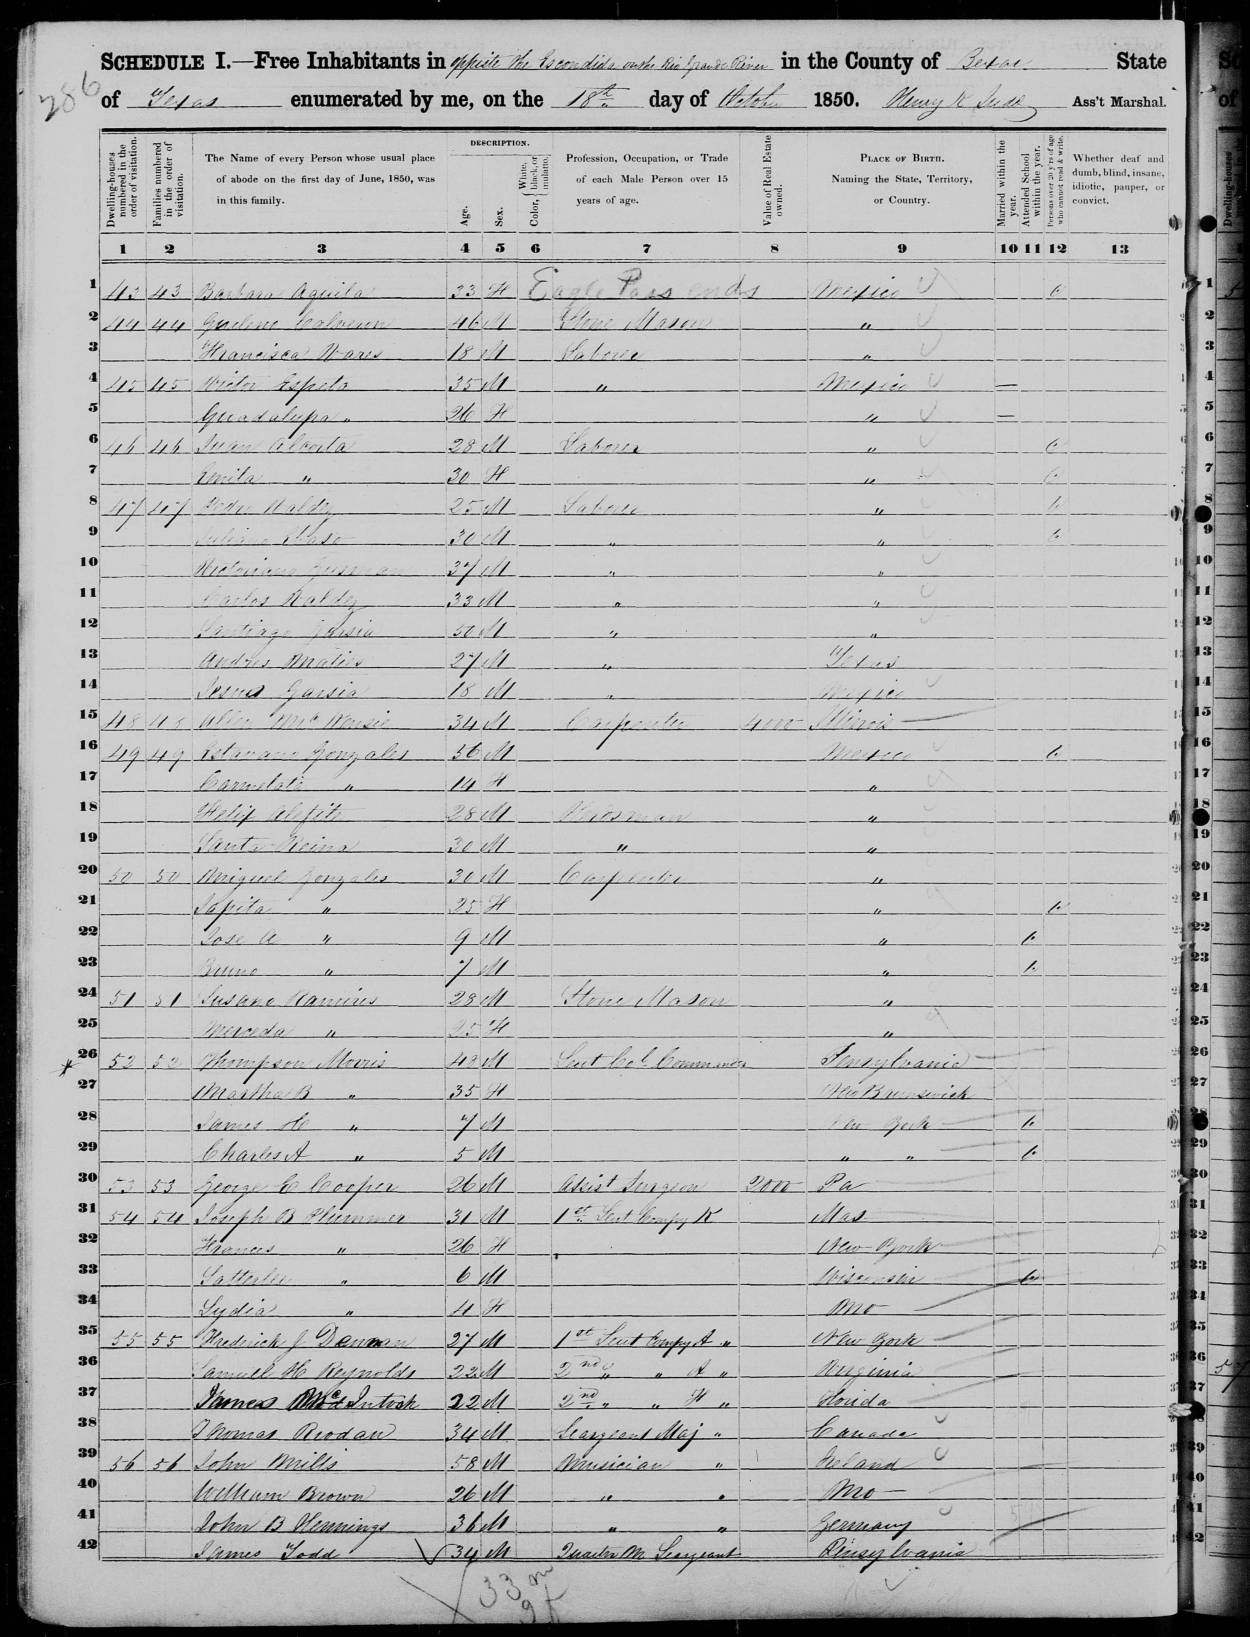 286
SCHEDULE I.—Free Inhabitants in oppisite the Escondida on the Rio Grande River in the County of Bexar State
of Texas enumerated by me, on the 18th day of October 1850. Henry K Ass't Marshal.
Dwelling-houses numbered in the order of visitation.
Families numbered in the order of visitation.
The Name of every Person whose usual place of abode on the first day of June, 1850, was in this family.
DESCRIPTION.
Age.
Sex.
Color, { White, black, or mulatto.
Profession, Occupation, or Trade of each Male Person over 15 years of age.
Value of Real Estate owned.
PLACE OF BIRTH. Naming the State, Territory, or Country.
Married within the year.
Attended School within the year.
Persons over 20 y'rs of age who cannot read & write.
Whether deaf and dumb, blind, insane, idiotic, pauper, or convict.
1 2 3 4 5 6 7 8 9 10 11 12 13
1 43 43 Barbara Aguila 33 F Eagle Pass ends Mexico
2 44 44 46 M Stone Mason "
3 Francisca 18 M Laborer "
4 45 45 Victor Espeta 35 M " Mexico —
5 Guadalupa " 26 F " —
6 46 46 Juan Alcorta 28 M Laborer "
7 Emila " 30 F "
8 47 47 Pedro Valdez 25 M Laborer "
9 30 M " "
10 Victoriano Gusman 37 M " "
11 Carlos Valdez 33 M " "
12 Santiago Garsia 50 M " "
13 Andres 27 M " Texas
14 Jesus Garsia 18 M " Mexico
15 48 48 34 M Carpenter 4000 Illinois
16 49 49 Estavano Gonzales 56 M Mexico
17 Carmelata " 14 F "
18 Felix 28 M Herdsman "
19 Santa Reina 30 M " "
20 50 50 Miguel Gonzales 30 M Carpenter "
21 Sapita " 25 F "
22 Jose A " 9 M "
23 Bruno " 7 M "
24 51 51 Susano Ramires 28 M Stone Mason "
25 Merceda " 25 F "
26 52 52 Thompson Morris 48 M Leut Col. Pensylvania
27 Martha B " 35 F New Brunswick
28 James " 7 M New York
29 Charles A " 5 M " "
30 53 53 George E Cooper 26 M Assist Surgeon 2000 Pa
31 54 54 Joseph B Plummer 31 M 1st Leut Compy K Mas
32 Frances " 26 F New York
33 Satterlee " 6 M Wisconsin
34 Lydia " 4 F Mo
35 55 55 Fredrick J Denman 27 M 1st Leut Compy A " New York
36 Samuel H Reynolds 22 M 2nd " " A " Virginia
37 James McIntosh 22 M 2nd " " H " Florida
38 Thomas Riodan 34 M Seargeant Maj " Canada
39 56 56 John Mills 58 M Musician " Ireland
40 William Brown 26 M " " Mo
41 John B Hennings 36 M " " Germany
42 James Todd 34 M Quarter M Seargeant Pensylvania
33 m
9 f